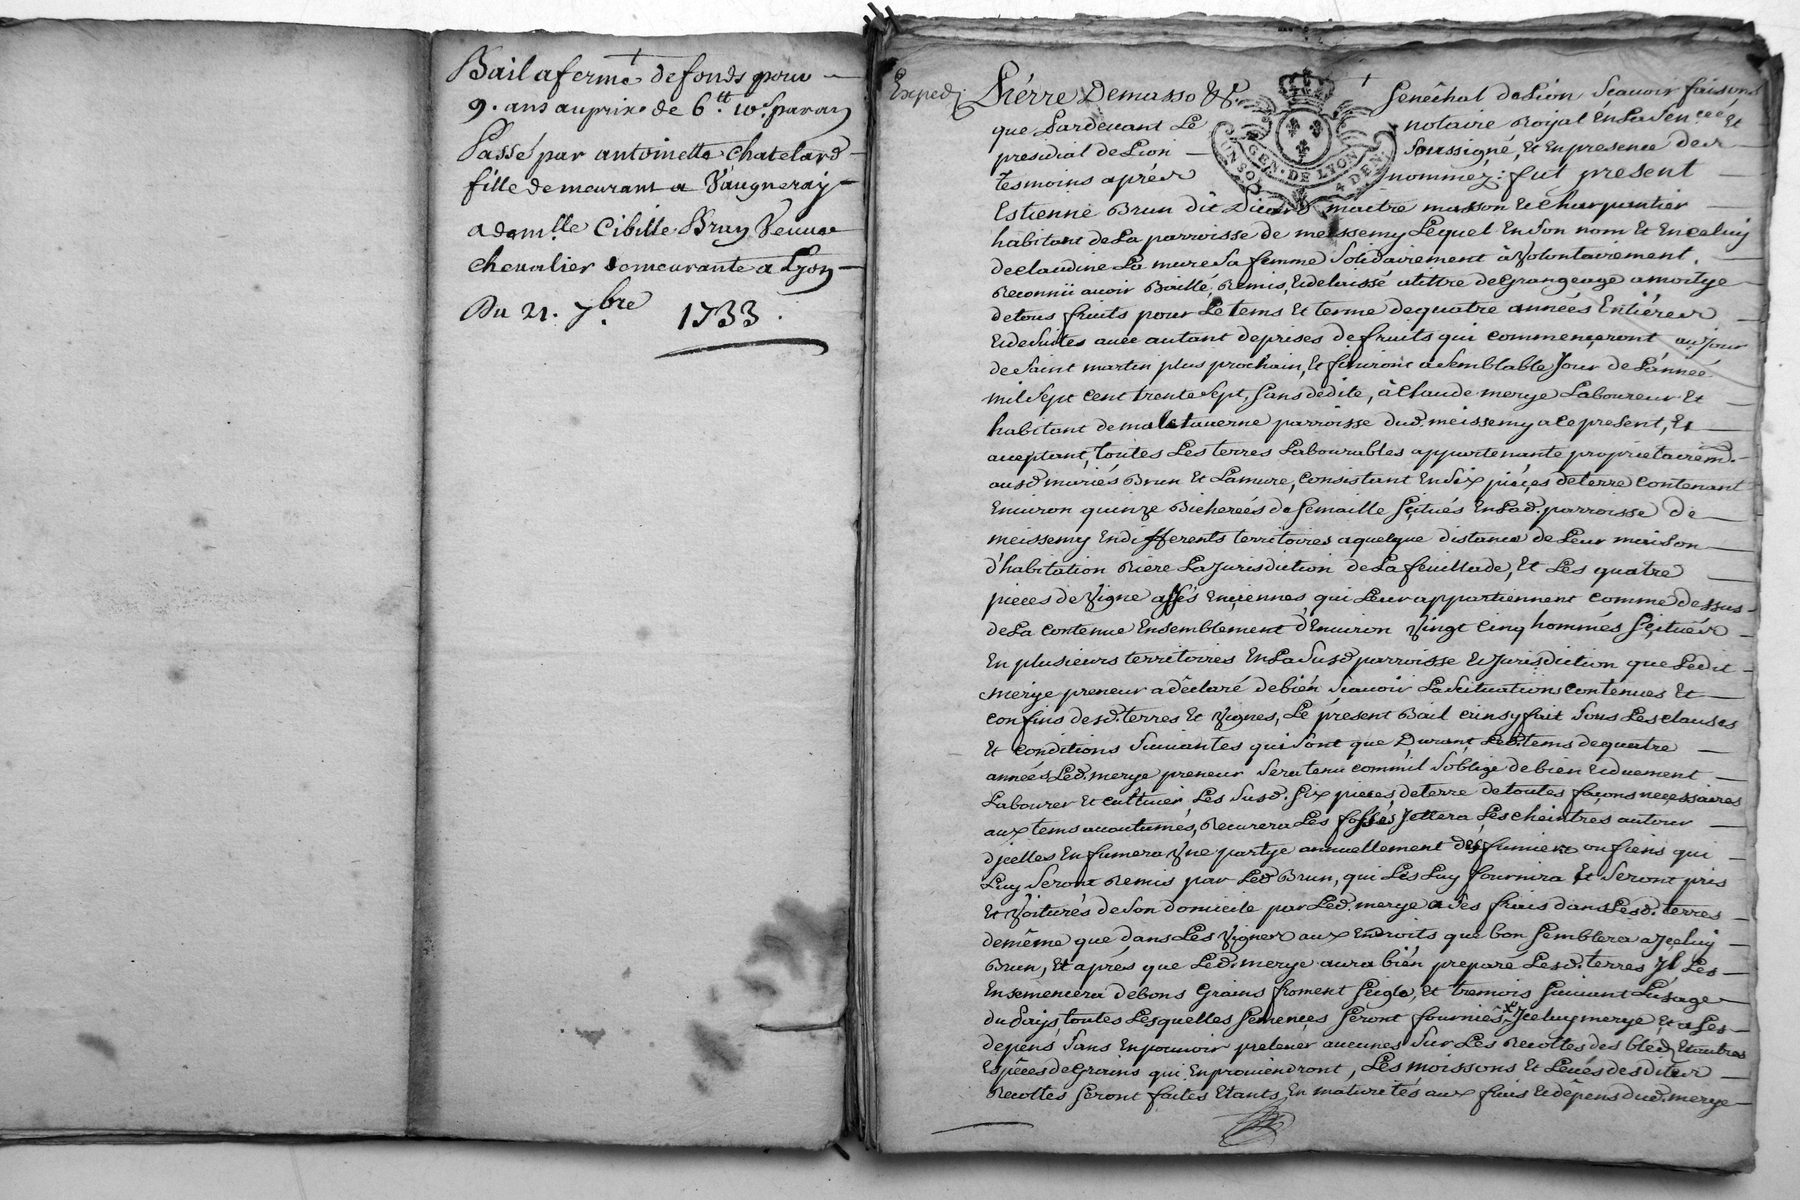 Bail a ferme de fonds pour
9. ans au prix de 6tt 10s par an
Passé par antoinette Chatelard
fille demeurant a Vaugneray
a demlle Cibille Brun Veuve
chevalier demeurante a Lyon
Du 21. 7bre 1733.
Exped.
Piérre Demasso &c. Senéchal de Lion Scavoir faisons
que Pardevant Le notaire Royal En La Sen.ceé et
présidial de Lion Soussigné, et En presence des
tesmoins aprés nommez: fut present
Estienne Brun dit maitre masson et charpentier
habitant de La parroisse de meissemy Lequel En Son nom Et En celuy
de claudine La mure Sa femme Solidairement à Volontairement.
Reconnü avoir Baillé, Remis, Et delaissé a tittre de Grangeage a moitye
de tous fruits pour Le tems Et terme de quatre années Entiéres
Et de Suites avec autant de prises de fruits qui commençeront au Jour
de Saint martin plus prochain, Et finiront a Semblable Jour de L'année
mil Sept cent trente Sept, Sans dedite, à Claude merye Laboureur Et
habitant de maletaverne parroisse dud. meissemy a ce present, Et
aceptant, toutes Les terres Labourables appartenante proprietairem.
ausd mariés Brun Et Lamure, consistant En Six pièçes de terre contenant
Environ quinze Bicherées de Semaille Scitués En Lad. parroisse de
meissemy En differents territoires a quelque distance de Leur maison
d'habitation Riere La Jurisdiction de La feuillade, Et Les quatre
pieces de Vigne assés Ençiennes qui Leur appartiennent comme dessus
de La contenue Ensemblement d'Environ Vingt Cinq hommés Scitués
En plusieurs territoires En La Susd parroisse Et Jurisdiction que Ledit
merye preneur a déclaré de bién Scavoir La Scituations contenues Et
confins desd. terres Et Vignes, Le présent Bail ainsy fait Sous Les clauses
Et conditions Suivantes qui Sont que Durant Led. tems de quatre
années Led. merye preneur Sera tenu comm'il S'oblige de bien Et duement
Labourer Et cultiver Les Susd. Six pieces de terre de toutes façons necessaires
aux tems acoutumés, Recurera Les fossés Jettera Les cheintres autour
d'jcelles En fumera Vne partye annuellement des fumiers ou fiens qui
Luy Seront Remis par Led Brun, qui Les Luy fournira Et Seront pris
Et Voiturés de Son domicile par Led. merye a Ses frais dans Lesd. terres
de même que dans Les Vignes aux Endroits que bon Semblera a Jçeluy
Brun, Et aprés que Led. merye aura bién preparé Lesd. terres Jl Les
Ensemencera de bons Grains froment Seigle, Et tremois Suivant L'usage
du Païs, toutes Lesquelles Semençes Seront fourniés Jceluy merye Et a Ses
depens Sans En pouvoir prelever aucunes Sur Les Recoltes des bleds Et autres
Espéces de Grains qui En proviendront, Les moissons Et Levés desdites
Recoltes Seront faites Etants En maturités aux frais Et dépens dud. merye
GEN. DE LYON
UN SOL 4 DEN.